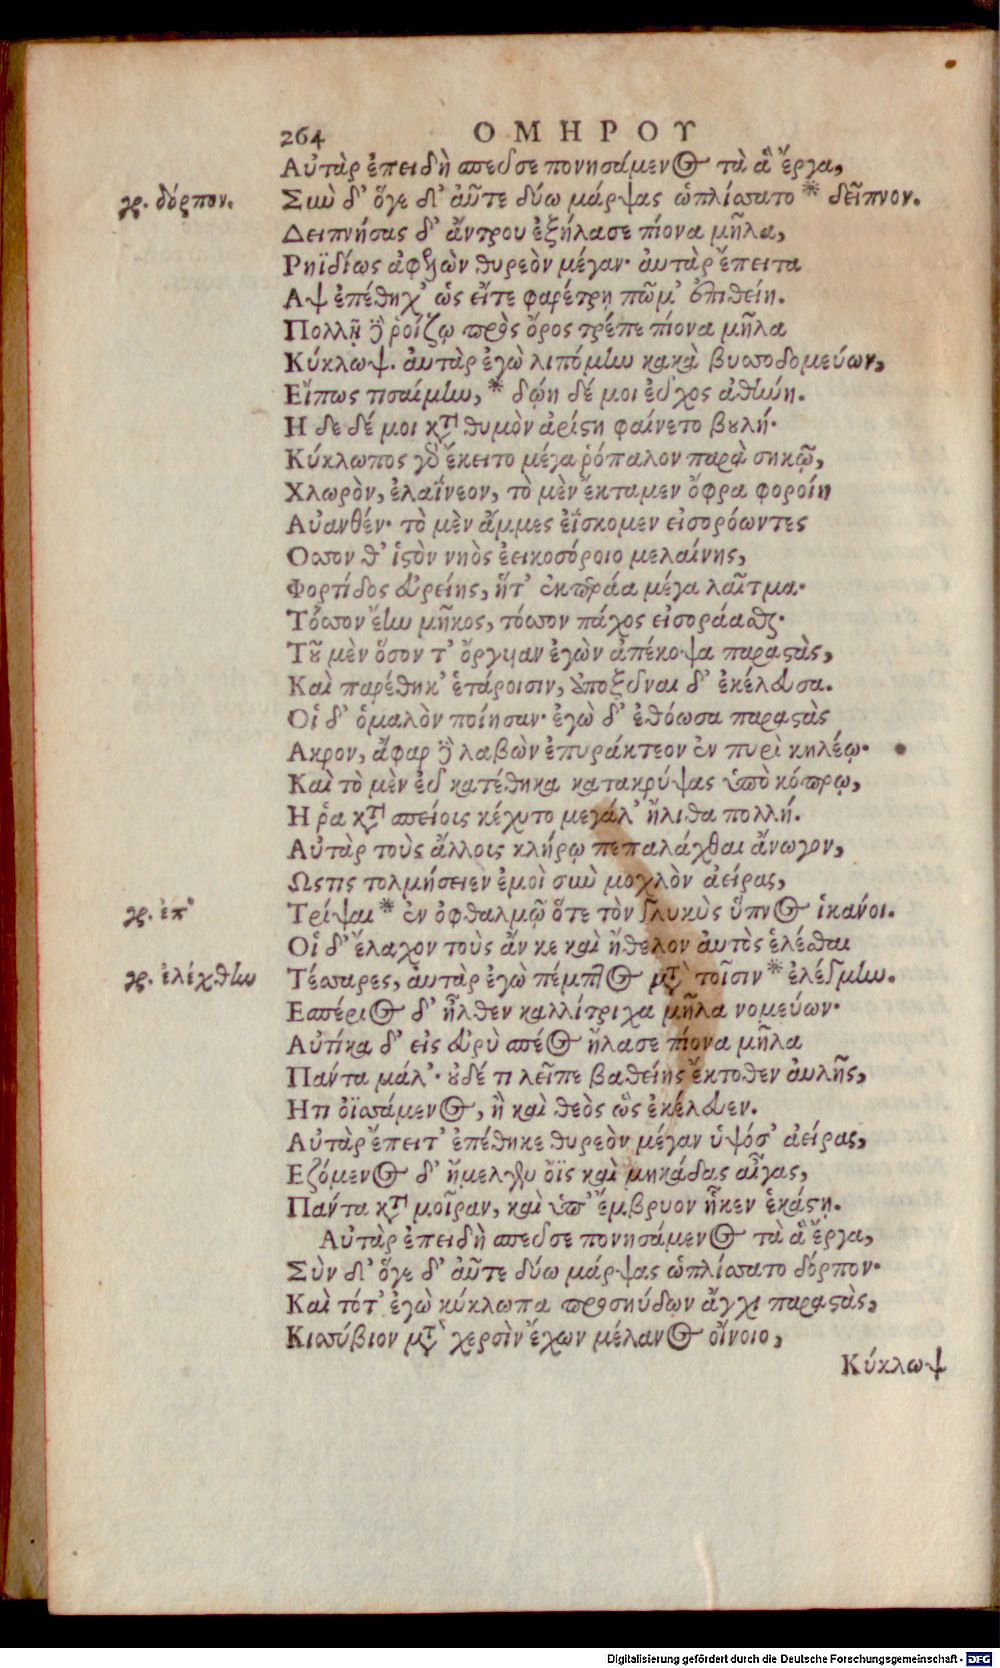 264 ΟΜΗΡΟΥ
Αὐτὰρ ἐπειδὴ σπεῦσε πονησάμενος τὰ ἃ ἔργα,
γρ. δόρπον. Σὺν δ' ὅγε δὴ αὖτε δύω μάρψας ὡπλίσσατο * δεῖπνον.
Δειπνήσας δ' ἄντρου ἐξήλασε πίονα μῆλα,
Ρηϊδίως ἀφελὼν θυρεὸν μέγαν· αὐτὰρ ἔπειτα
Αψ ἐπέθηχ' ὡς εἴτε φαρέτρῃ πῶμ' ἐπιθείη.
Πολλῇ δὲ ῥοίζῳ πρὸς ὄρος τρέπε πίονα μῆλα
Κύκλωψ. αὐτὰρ ἐγὼ λιπόμην κακὰ βυσσοδομεύων,
Εἴπως τισαίμην, * δῴη δέ μοι εὖχος ἀθήνη.
Η δε δέ μοι κατὰ θυμὸν ἀρίστη φαίνετο βουλή·
Κύκλωπος γὰρ ἔκειτο μέγα ῥόπαλον παρὰ σηκῷ,
Χλωρὸν, ἐλαΐνεον, τὸ μὲν ἔκταμεν ὄφρα φοροίη
Αὐανθέν· τὸ μὲν ἄμμες ἐΐσκομεν εἰσορόωντες
Οσσον θ' ἱστὸν νηὸς ἐεικοσόροιο μελαίνης,
Φορτίδος εὐρείης, ἥτ' ἐκπεράα μέγα λαῖτμα·
Τόσσον ἔην μῆκος, τόσσον πάχος εἰσοράασθαι·
Τοῦ μὲν ὅσον τ' ὄργυιαν ἐγὼν ἀπέκοψα παραστὰς,
Καὶ παρέθηκ' ἑτάροισιν, ὑποξῦναι δ' ἐκέλευσα.
Οἱ δ' ὁμαλὸν ποίησαν· ἐγὼ δ' ἐθόωσα παραστὰς
Ακρον, ἄφαρ δὲ λαβὼν ἐπυράκτεον ἐν πυρὶ κηλέῳ·
Καὶ τὸ μὲν εὖ κατέθηκα κατακρύψας ὑπὸ κόπρῳ,
Η ῥα κατὰ σπείοις κέχυτο μεγάλ' ἤλιθα πολλή.
Αὐτὰρ τοὺς ἄλλοις κλήρῳ πεπαλάχθαι ἄνωγον,
Ωςτις τολμήσειεν ἐμοὶ σὺν μοχλὸν ἀείρας,
γρ. ἐπ' Τρίψαι * ἐν ὀφθαλμῷ ὅτε τὸν γλυκὺς ὕπνος ἱκάνοι.
Οἱ δ' ἔλαχον τοὺς ἄν κε καὶ ἤθελον αὐτὸς ἑλέσθαι
γρ. ἐλέχθην Τέσσαρες, αὐτὰρ ἐγὼ πέμπτος μετὰ τοῖσιν * ἐλέγμην.
Εσπέριος δ' ἦλθεν καλλίτριχα μῆλα νομεύων·
Αὐτίκα δ' εἰς εὐρὺ σπέος ἤλασε πίονα μῆλα
Πάντα μάλ'· οὐδέ τι λεῖπε βαθείης ἔκτοθεν αὐλῆς,
Ητι ὀϊσσάμενος, ἢ καὶ θεὸς ὣς ἐκέλευεν.
Αὐτὰρ ἔπειτ' ἐπέθηκε θυρεὸν μέγαν ὑψόσ' ἀείρας,
Εζόμενος δ' ἤμελγεν ὄϊς καὶ μηκάδας αἶγας,
Πάντα κατὰ μοῖραν, καὶ ὑπ' ἔμβρυον ἧκεν ἑκάστῃ.
Αὐτὰρ ἐπειδὴ σπεῦσε πονησάμενος τὰ ἃ ἔργα,
Σὺν δ' ὅγε δ' αὖτε δύω μάρψας ὡπλίσσατο δόρπον·
Καὶ τότ' ἐγὼ κύκλωπα προσηύδων ἄγχι παραστὰς,
Κισσύβιον μετὰ χερσὶν ἔχων μέλανος οἴνοιο,
Κύκλωψ
Digitalisierung gefördert durch die Deutsche Forschungsgemeinschaft - DFG